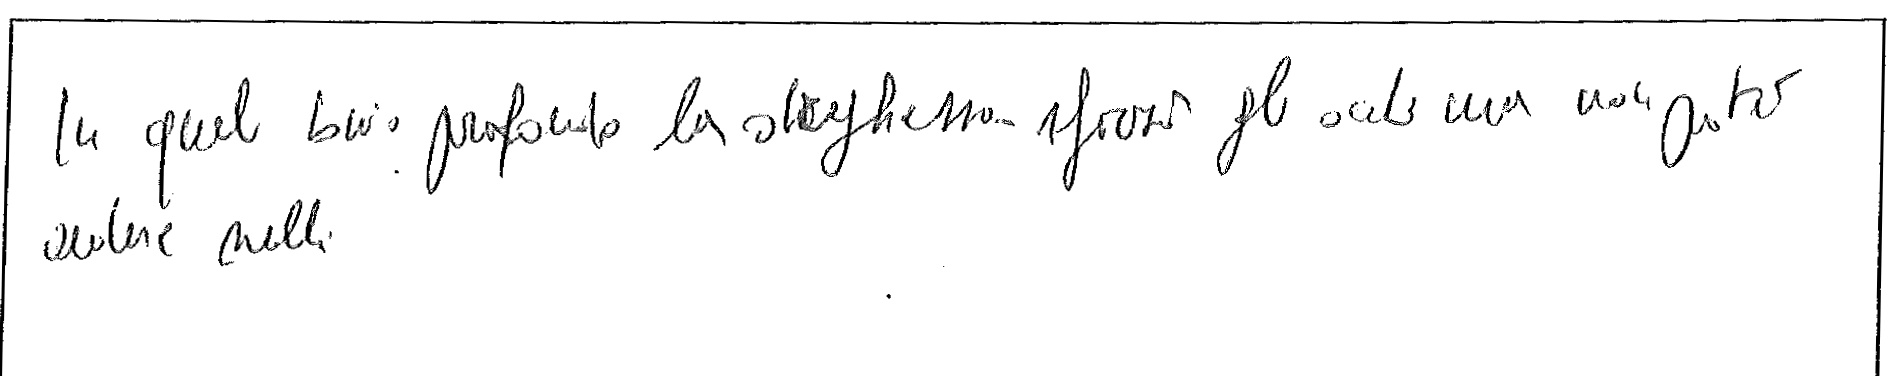 In quel buio profondo la streghetta sforzò gli occhi ma non potè
vedere nulla